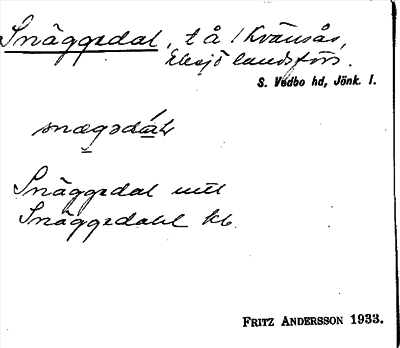 Snäggedal, t å 1 Kvänsås,
Eksjö landsförs.
S. Vedbo hd, Jönk. l.
Snäggedal mtl
Snäggedahl kb
FRITZ ANDERSSON 1933.